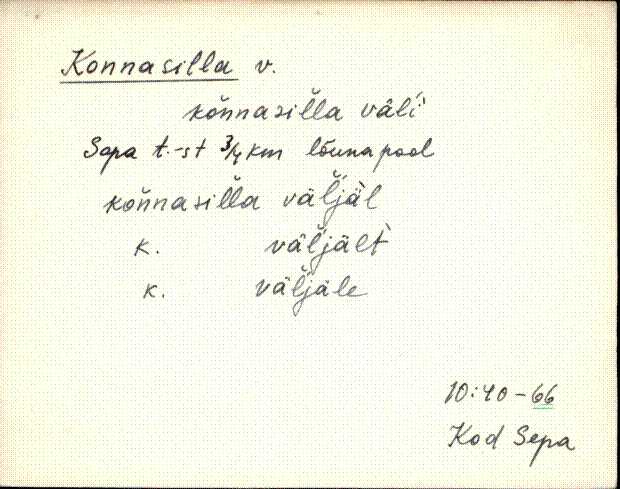 Konnasilla v.
kon̆nasil̆la väl̆i
Sepa t.-st 3/4 km lõuna pool
kon̆nasil̆la väl̆jäl
k. väl̆jält
k. väl̆jäle
10:40-66
Kod Sepa